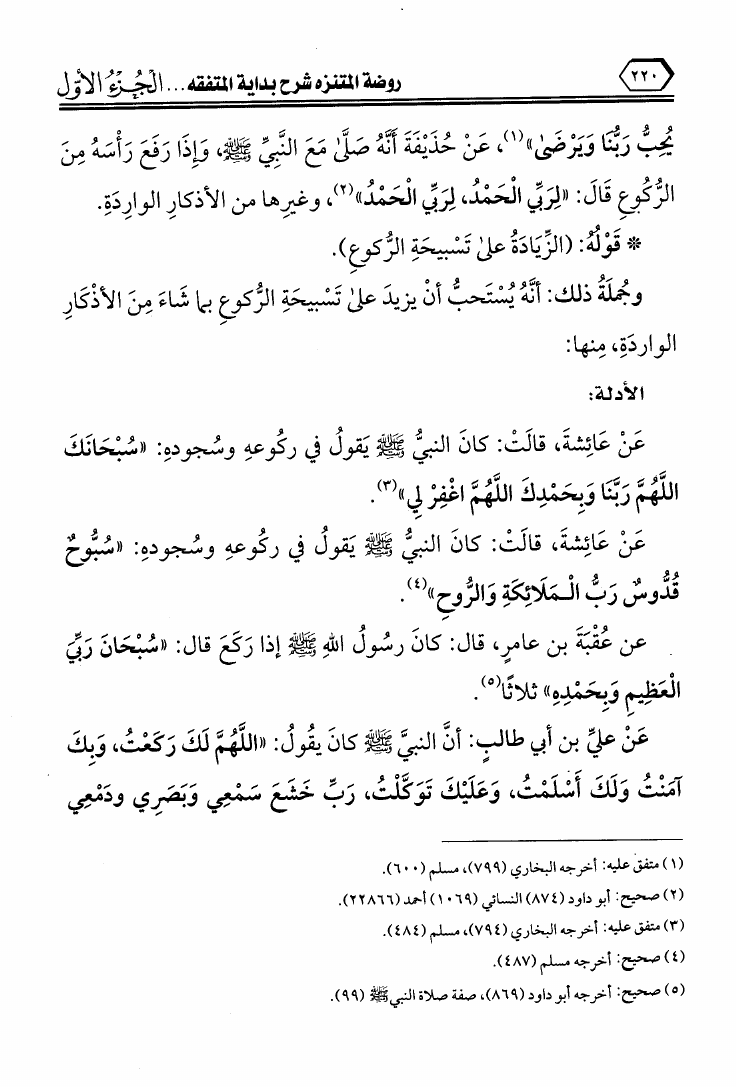 ٢٢٠
روضة المتنزه شرح بداية المتفقه ... الْجُزْءُ الأوّل
يُحِبُّ رَبُّنَا وَيَرْضَىٰ»(١)، عَنْ حُذَيْفَةَ أَنَّهُ صَلَّىٰ مَعَ النَّبِيِّ ﷺ، وَإِذَا رَفَعَ رَأْسَهُ مِنَ
الرُّكُوعِ قَالَ: «لِرَبِّي الْحَمْدُ، لِرَبِّي الْحَمْدُ»(٢)، وغيرِها من الأذكارِ الوارِدَةِ.
* قَوْلُهُ: (الزِّيَادَةُ علىٰ تَسْبِيحَةِ الرُّكوعِ).
وجُملَةُ ذلك: أنَّهُ يُسْتَحبُّ أنْ يزيدَ علىٰ تَسْبِيحَةِ الرُّكوعِ بما شَاءَ مِنَ الأذْكَارِ
الوارِدَةِ، مِنها:
الأدلة:
عَنْ عَائِشةَ، قالَتْ: كانَ النبيُّ ﷺ يَقولُ في ركُوعهِ وسُجودهِ: «سُبْحَانَكَ
اللَّهُمَّ رَبَّنَا وَبِحَمْدِكَ اللَّهُمَّ اغْفِرْ لِي»(٣).
عَنْ عَائِشةَ، قالَتْ: كانَ النبيُّ ﷺ يَقولُ في ركُوعهِ وسُجودهِ: «سُبُّوحٌ
قُدُّوسٌ رَبُّ الْمَلَائِكَةِ وَالرُّوحِ»(٤).
عن عُقْبَةَ بن عامرٍ، قال: كانَ رسُولُ اللهِ ﷺ إذا رَكَعَ قال: «سُبْحَانَ رَبِّيَ
الْعَظِيمِ وَبِحَمْدِهِ» ثلاثًا(٥).
عَنْ عليِّ بن أبي طالبٍ: أنَّ النبيَّ ﷺ كانَ يقُولُ: «اللَّهُمَّ لَكَ رَكَعْتُ، وَبِكَ
آمَنْتُ وَلَكَ أَسْلَمْتُ، وَعَلَيْكَ تَوَكَّلْتُ، رَبِّ خَشَعَ سَمْعِي وَبَصَرِي ودَمْعِي
(١) متفق عليه: أخرجه البخاري (٧٩٩)، مسلم (٦٠٠).
(٢) صحيح: أبو داود (٨٧٤) النسائي (١٠٦٩) أحمد (٢٢٨٦٦).
(٣) متفق عليه: أخرجه البخاري (٧٩٤)، مسلم (٤٨٤).
(٤) صحيح: أخرجه مسلم (٤٨٧).
(٥) صحيح: أخرجه أبو داود (٨٦٩)، صفة صلاة النبي ﷺ (٩٩).